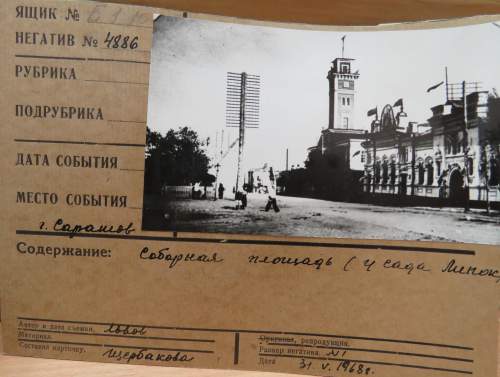 ЯЩИК №
НЕГАТИВ № 4886
РУБРИКА
ПОДРУБРИКА
ДАТА СОБЫТИЯ
МЕСТО СОБЫТИЯ
г. Саратов
Содержание: Соборная площадь (у сада Липок)
Автор и дата съемки. Львов
Материал.
Составил карточку. Щербакова
Оригинал, репродукция.
Размер негатива. №1
Дата 31.V.1968г.